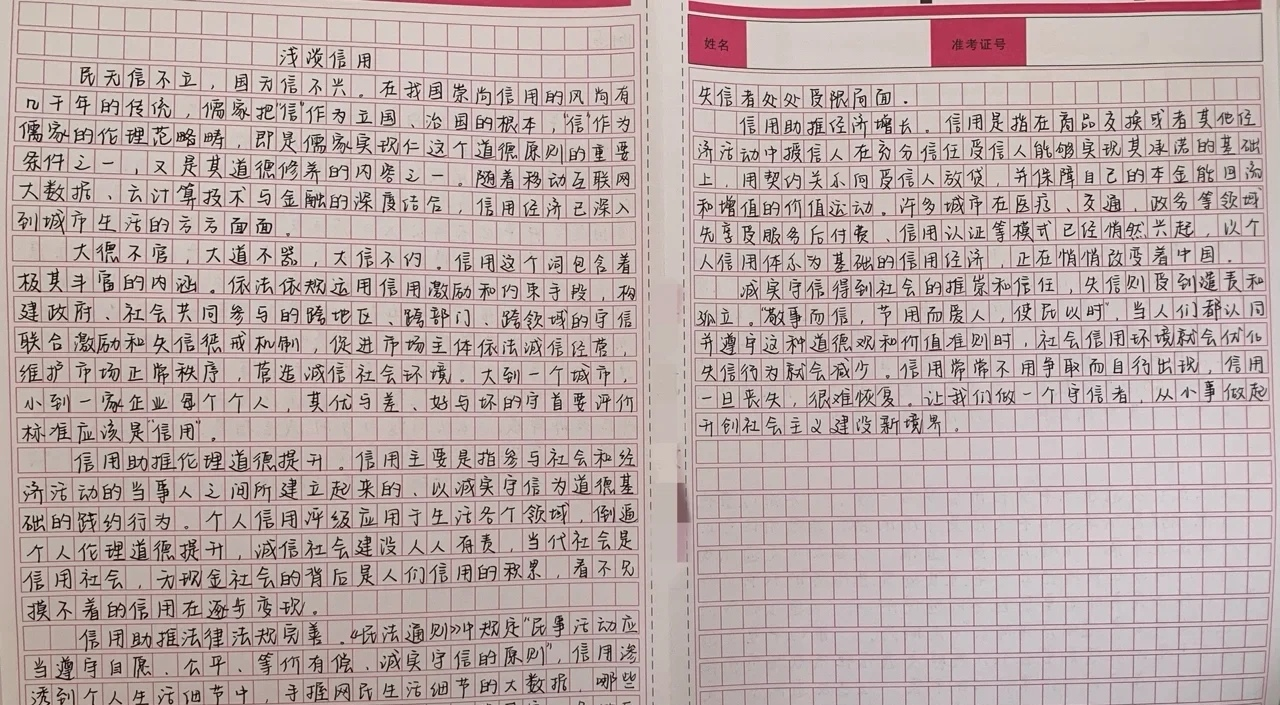 浅谈信用
民无信不立，国无信不兴。在我国崇尚信用的风尚有
几千年的传统，儒家把“信”作为立国、治国的根本，“信”作为
儒家的伦理范略畴，即是儒家实现仁这个道德原则的重要
条件之一，又是其道德修养的内容之一。随着移动互联网
大数据、云计算技术与金融的深度结合，信用经济已深入
到城市生活的方方面面。
大德不官，大道不器，大信不约。信用这个词包含着
极其丰富的内涵。依法依规运用信用激励和约束手段，构
建政府、社会共同参与的跨地区、跨部门、跨领域的守信
联合激励和失信惩戒机制，促进市场主体依法诚信经营，
维护市场正常秩序，营造诚信社会环境。大到一个城市，
小到一家企业每个个人，其优与差、好与坏的守首要评价
标准应该是“信用”。
信用助推伦理道德提升。信用主要是指参与社会和经
济活动的当事人之间所建立起来的、以诚实守信为道德基
础的践约行为。个人信用评级应用于生活各个领域，倒逼
个人伦理道德提升，诚信社会建设人人有责，当代社会是
信用社会，无现金社会的背后是人们信用的积累，看不见
摸不着的信用在逐步变现。
信用助推法律法规完善。《民法通则》中规定“民事活动应
当遵守自愿、公平、等价有偿、诚实守信的原则”，信用渗
透到个人生活细节中，手握网民生活细节的大数据，哪些
姓名
准考证号
失信者处处受限局面．
信用助推经济增长。信用是指在商品交换或者其他经
济活动中授信人在充分信任受信人能够实现其承诺的基础
上，用契约关系向受信人放贷，并保障自己的本金能回流
和增值的价值运动。许多城市在医疗、交通，政务等领域
先享受服务后付费、信用认证等模式已经悄然兴起，以个
人信用体系为基础的信用经济，正在悄悄改变着中国．
诚实守信得到社会的推崇和信任，失信则受到谴责和
孤立。“敬事而信，节用而爱人，使民以时”，当人们都认同
并遵守这种道德观和价值准则时，社会信用环境就会优化
失信行为就会减少。信用常常不用争取而自行出现，信用
一旦丧失，很难恢复。让我们做一个守信者，从小事做起
开创社会主义建设新境界。